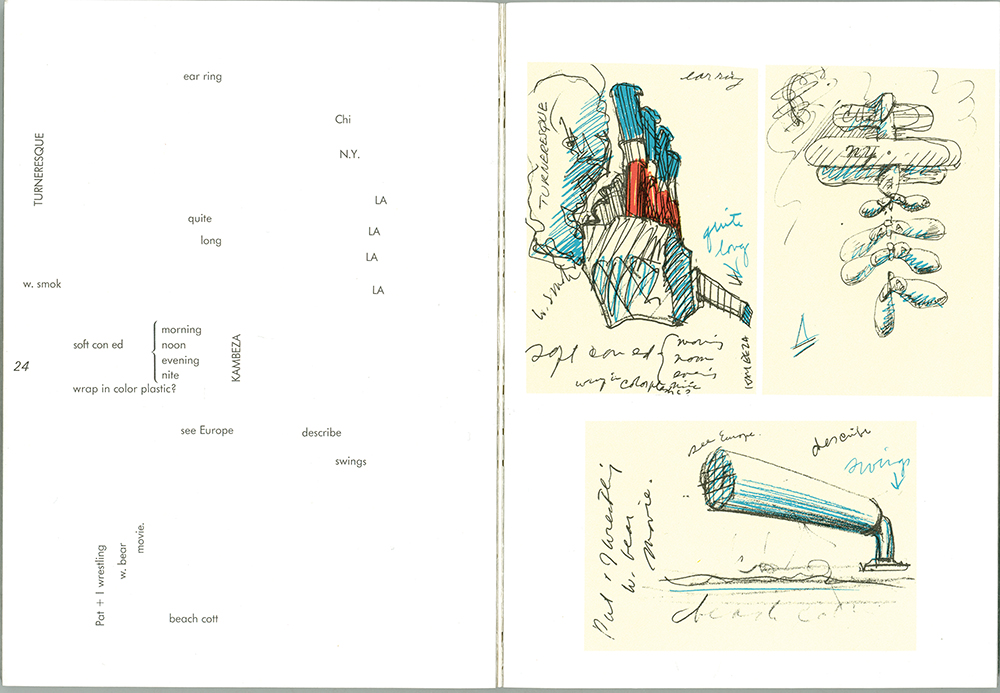 ear ring
Chi
TURNERESQUE
N.Y.
LA
quite
long
LA
LA
w. smok
LA
soft con ed
morning
noon
evening
nite
KAMBEZA
24
wrap in color plastic?
see Europe
describe
swings
Pat + I wrestling
w. bear
movie.
beach cott
ear ring
TURNERESQUE
quite
long
w. smok
soft con ed
morning
noon
evening
nite
wrap in color plastic?
KAMBEZA
CHI
N.Y.
see Europe.
describe
swings
Pat + I wrestling
w. bear
movie.
beach cott